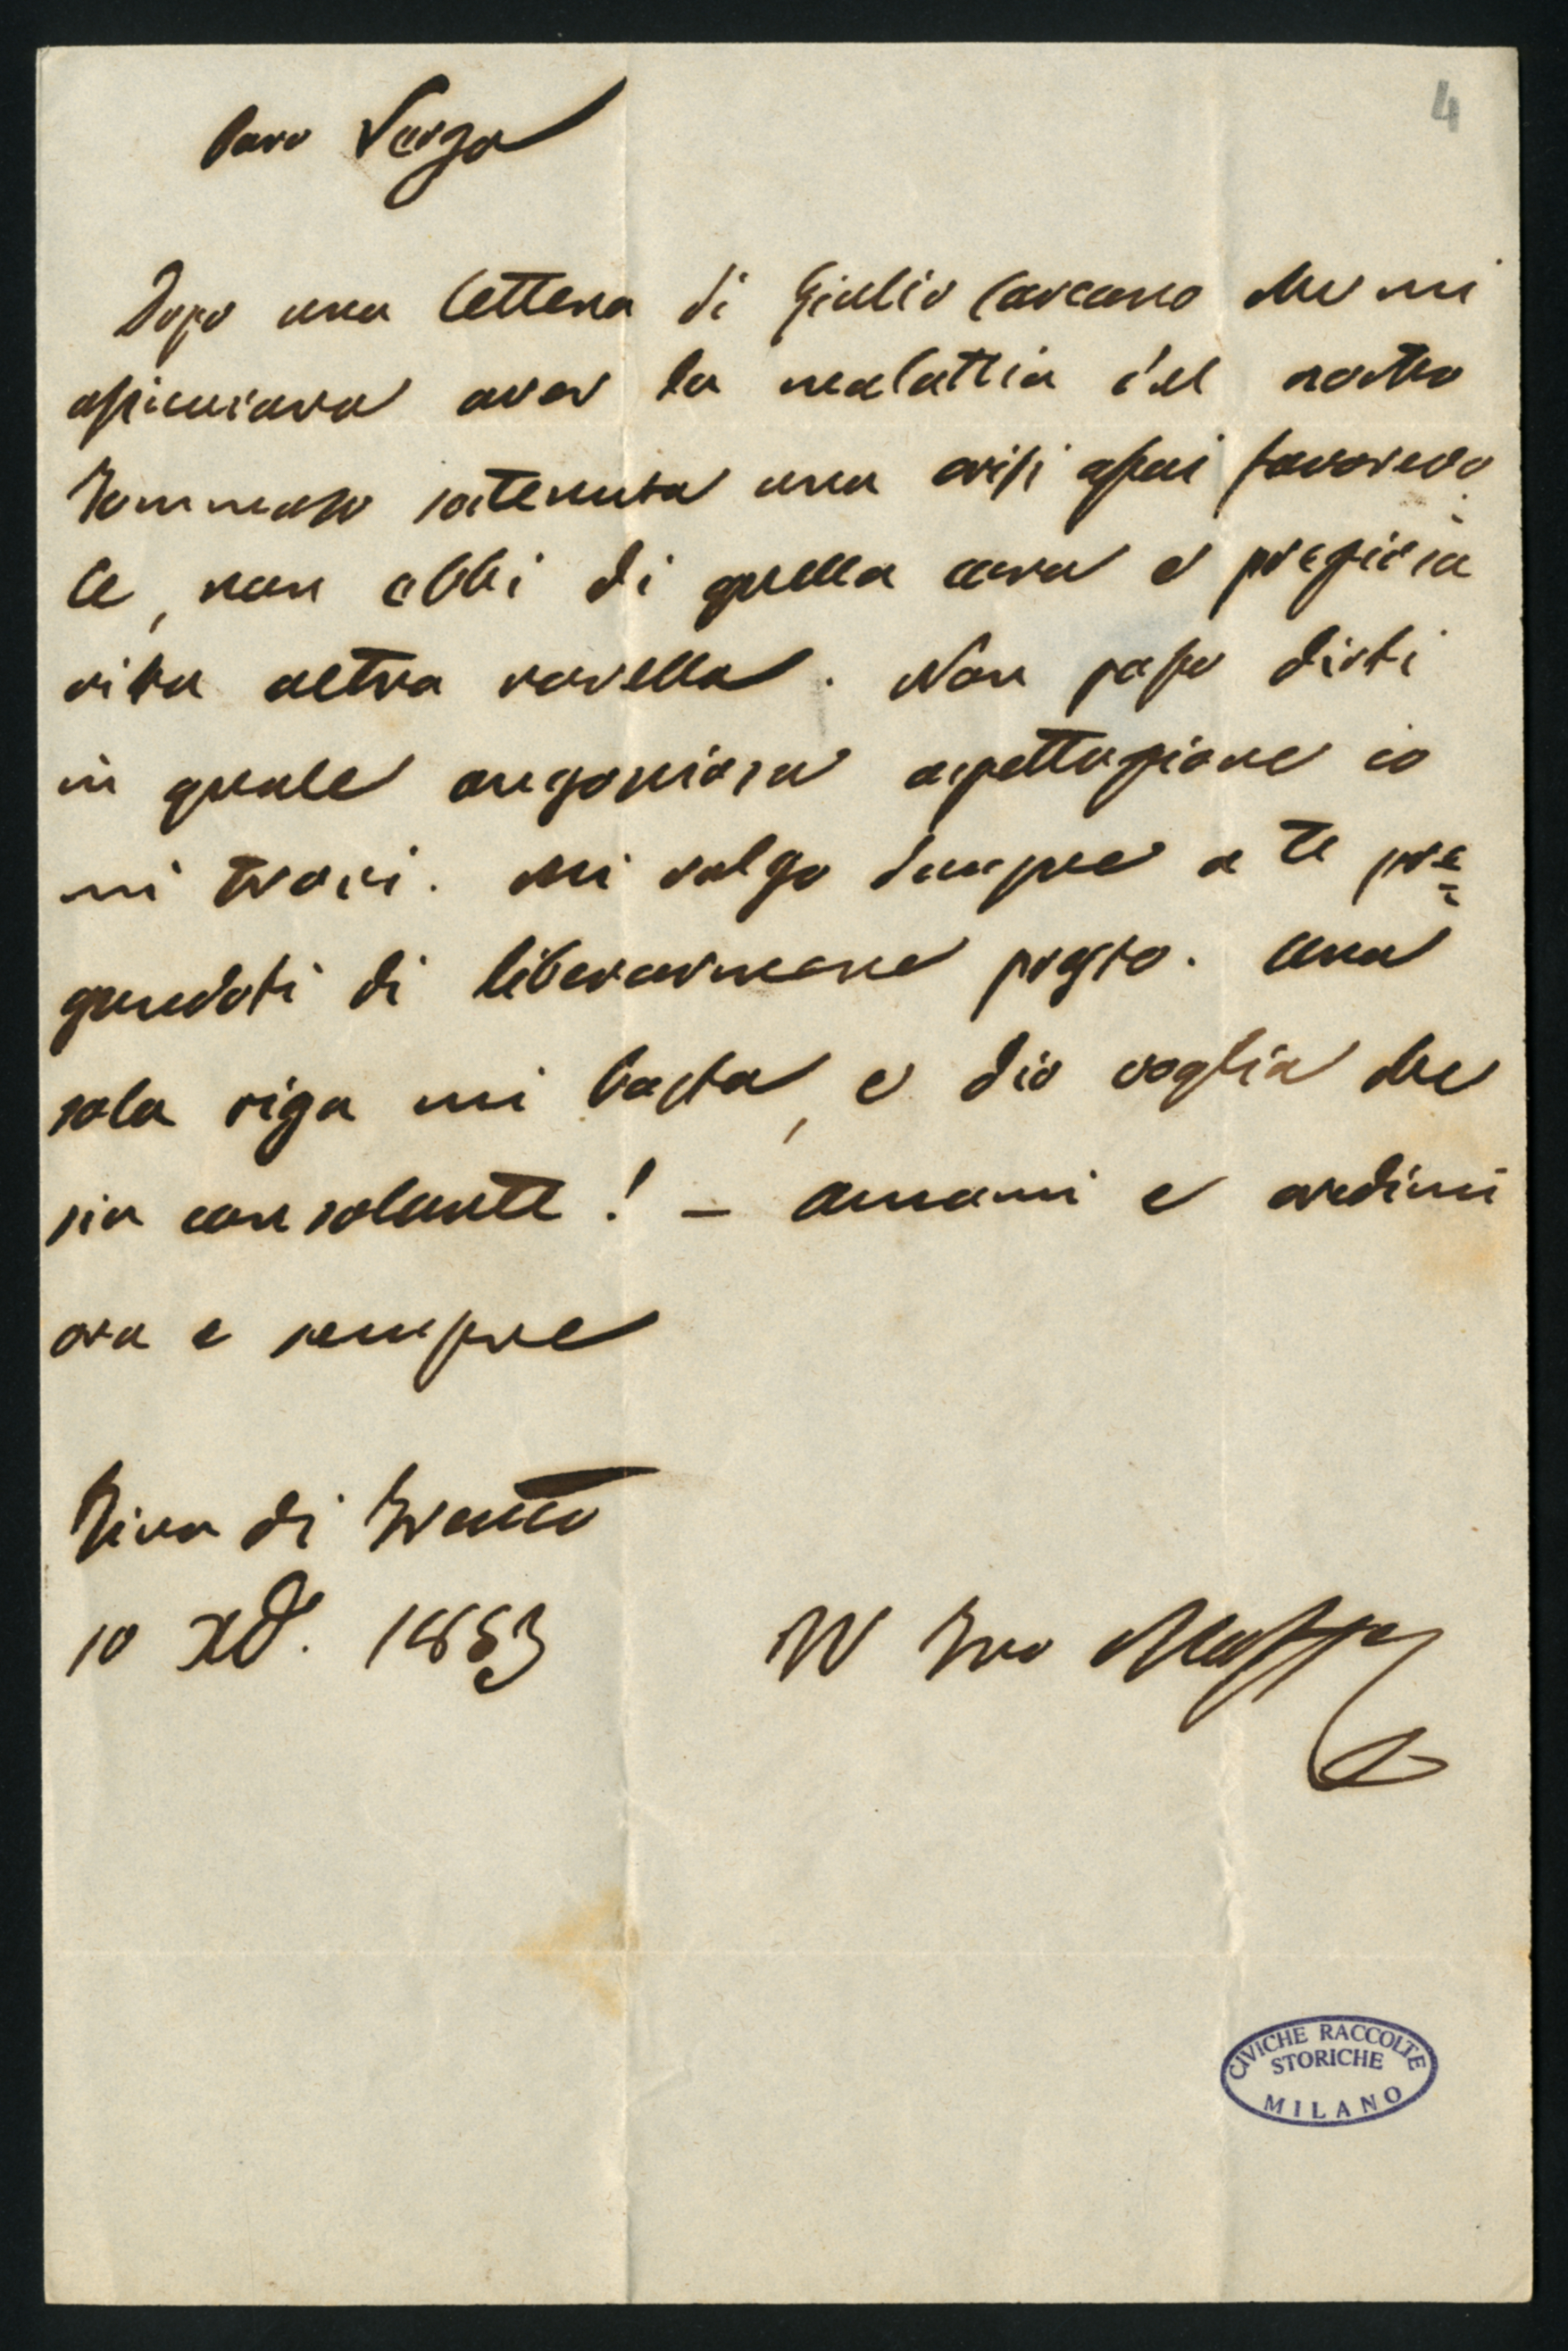 4
Caro Verga
Dopo una lettera di Giulio Carcano che mi
assicurava aver la malattia del nostro
Tommaso sostenuta una crisi assai favorevo
le, non ebbi di quella cara e preziosa
vita altra novella. Non posso dirti
in quale angosciosa aspettazione io
mi trovi. Mi volgo dunque a te pre=
gandoti di liberarmene presto. Una
sola riga mi basta, e dio voglia che
sia consolante! – Amami e credimi
ora e sempre
Riva di Trento
10 Xb. 1853
Il tuo Maffei
CIVICHE RACCOLTE
STORICHE
MILANO